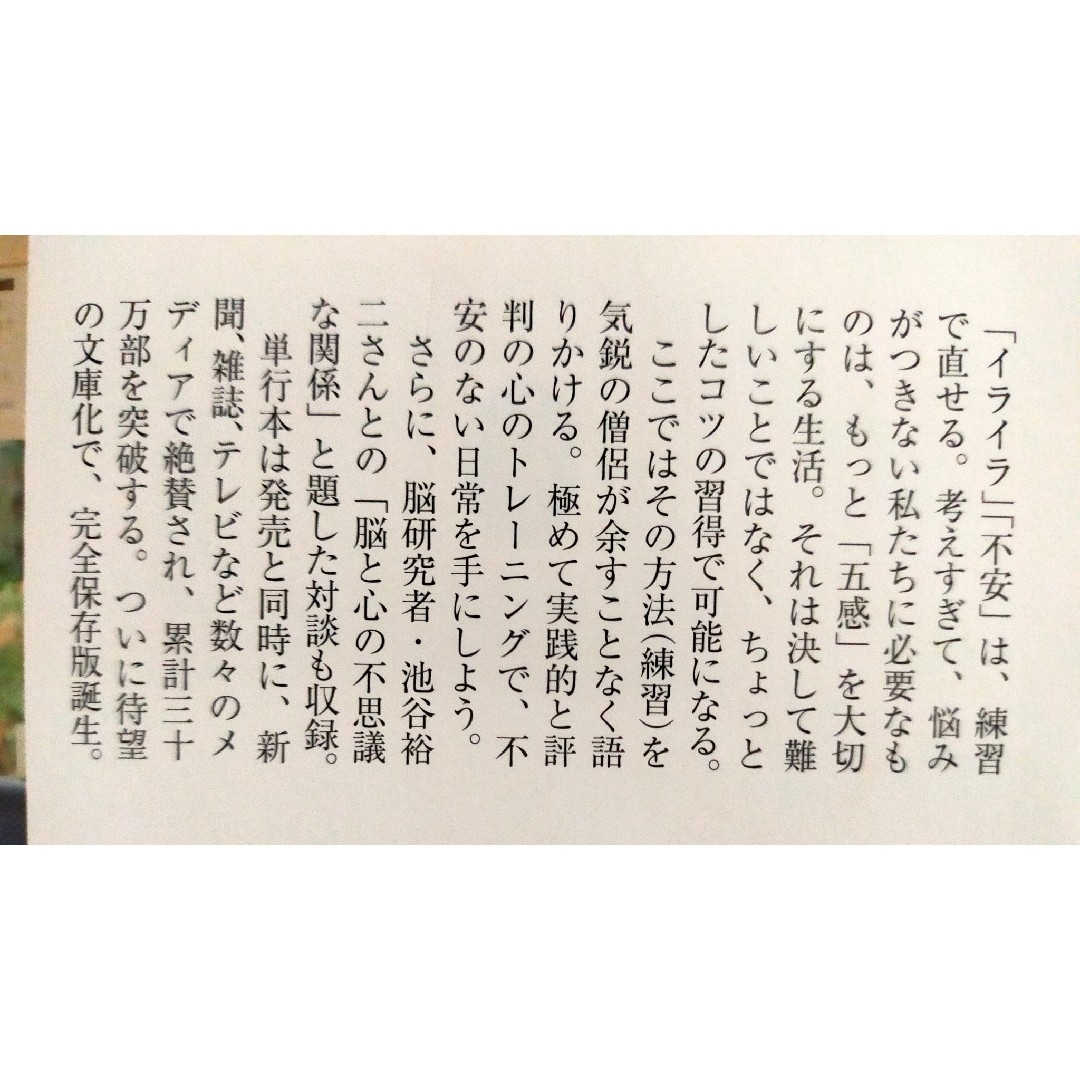 「イライラ」「不安」は、練習
で直せる。考えすぎて、悩み
がつきない私たちに必要なも
のは、もっと「五感」を大切
にする生活。それは決して難
しいことではなく、ちょっと
したコツの習得で可能になる。
ここではその方法(練習)を
気鋭の僧侶が余すことなく語
りかける。極めて実践的と評
判の心のトレーニングで、不
安のない日常を手にしよう。
さらに、脳研究者・池谷裕
二さんとの「脳と心の不思議
な関係」と題した対談も収録。
単行本は発売と同時に、新
聞、雑誌、テレビなど数々のメ
ディアで絶賛され、累計三十
万部を突破する。ついに待望
の文庫化で、完全保存版誕生。